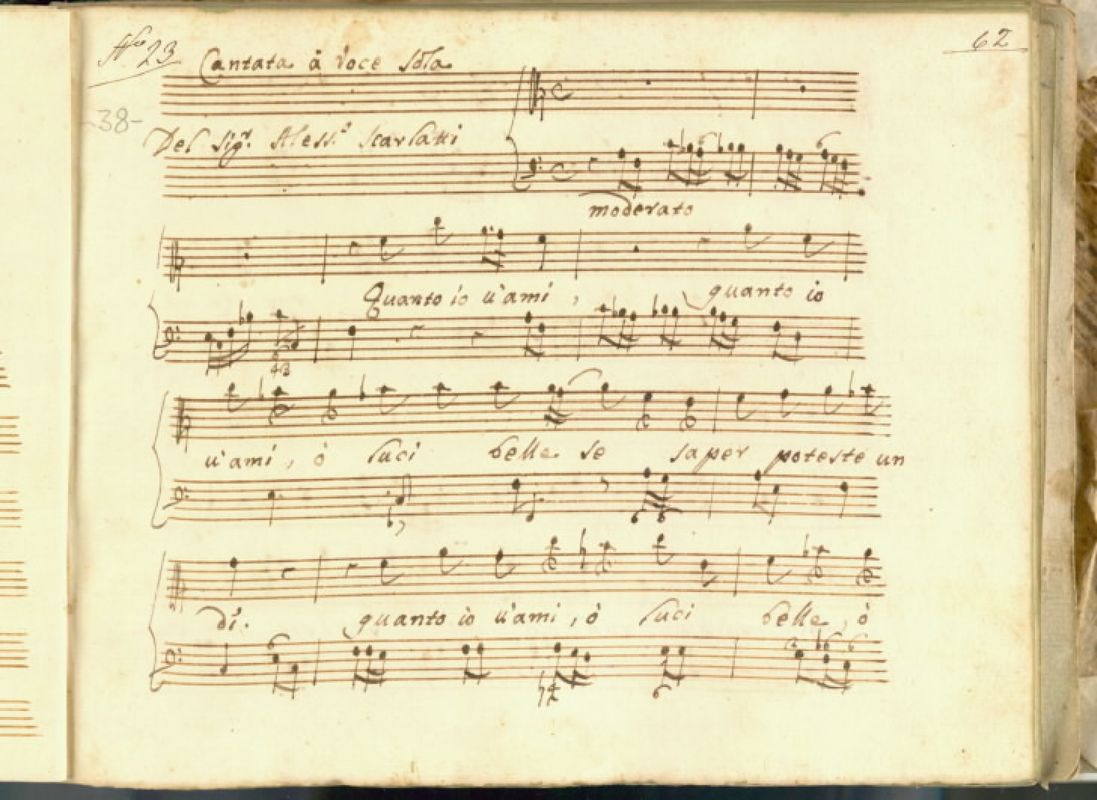 No 23
62
Cantata à Voce Sola
-38-
Del Sigr. Aless.o Scarlatti
moderato
Quanto io v'ami, quanto io
43
v'ami, ò luci belle se saper poteste un
dì. quanto io v'ami, ò luci belle, ò